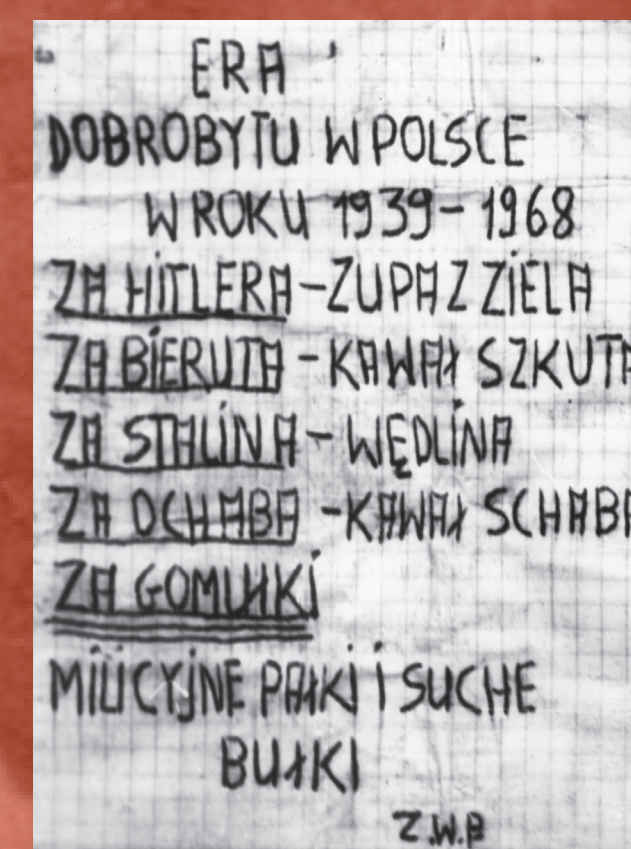 ERA
DOBROBYTU W POLSCE
W ROKU 1939-1968
ZA HITLERA-ZUPA Z ZIELA
ZA BIERUTA-KAWAŁ SZKUTA
ZA STALINA-WĘDLINA
ZA OCHABA-KAWAŁ SCHABA
ZA GOMUŁKI
MILICYJNE PAŁKI I SUCHE
BUŁKI
Z.W.P